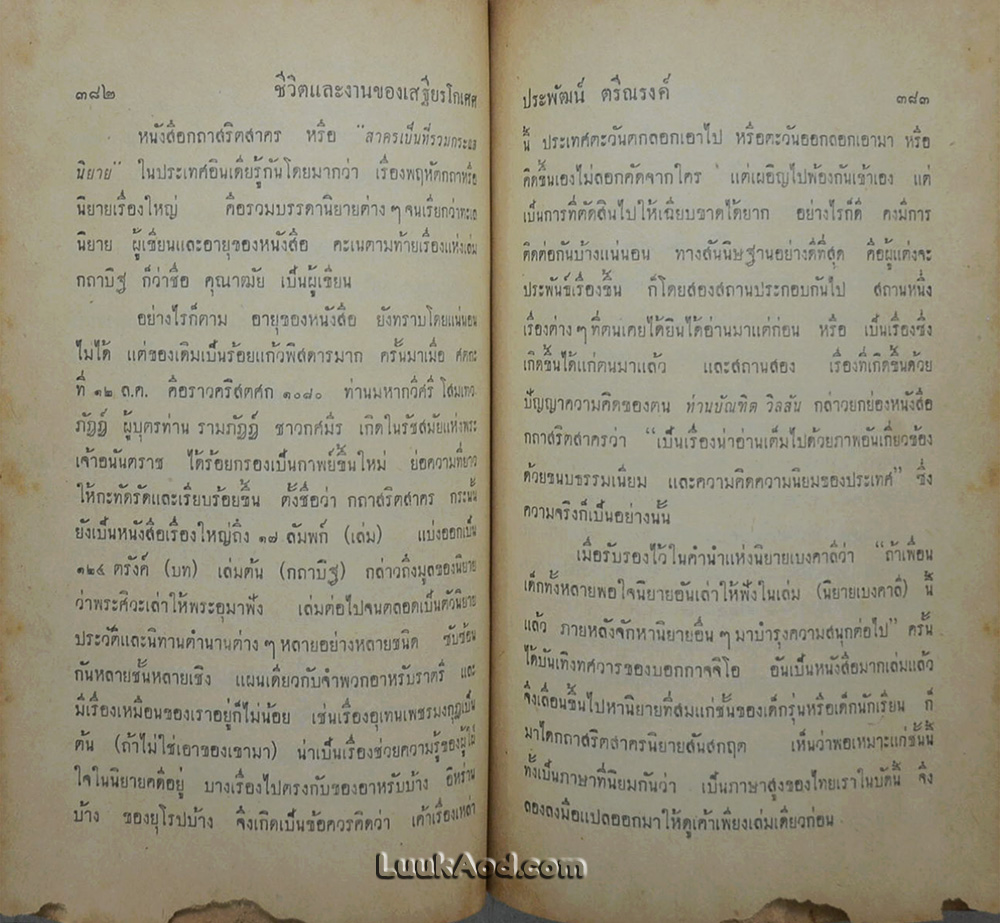 ๓๘๒ ชีวิตและงานของเสฐียรโกเศศ
หนังสือกถาสริตสาคร หรือ "สาครเป็นที่รวมกระแส
นิยาย" ในประเทศอินเดียรู้กันโดยมากว่า เรื่องพฤหัตกถาหรือ
นิยายเรื่องใหญ่ คือรวมบรรดานิยายต่าง ๆ จนเรียกว่าทะเล
นิยาย ผู้เขียนและอายุของหนังสือ คะเนตามท้ายเรื่องแห่งเล่ม
กถาบิฐ ก็ว่าชื่อ คุณาฒัย เป็นผู้เขียน
อย่างไรก็ตาม อายุของหนังสือ ยังทราบโดยแน่นอน
ไม่ได้ แต่ของเดิมเป็นร้อยแก้วพิสดารมาก ครั้นมาเมื่อ ศตกะ
ที่ ๑๒ ล.ศ. คือราวคริสตศก ๑๐๘๐ ท่านมหากวีศรี โสมเทว
ภัฏฏ์ ผู้บุตรท่าน รามภัฏฏ์ ชาวกศมีร เกิดในรัชสมัยแห่งพระ
เจ้าอนันตราช ได้ร้อยกรองเป็นกาพย์ขึ้นใหม่ ย่อความที่ยาว
ให้กะทัดรัดและเรียบร้อยขึ้น ตั้งชื่อว่า กถาสริตสาคร กระนั้น
ยังเป็นหนังสือเรื่องใหญ่ถึง ๑๗ ลัมพก์ (เล่ม) แบ่งออกเป็น
๑๒๔ ตรังค์ (บท) เล่มต้น (กถาบิฐ) กล่าวถึงมูลของนิยาย
ว่าพระศิวะเล่าให้พระอุมาฟัง เล่มต่อไปจนตลอดเป็นตัวนิยาย
ประวัติและนิทานตำนานต่าง ๆ หลายอย่างหลายชนิด ซับซ้อน
กันหลายชั้นหลายเชิง แผนเดียวกับจำพวกอาหรับราตรี และ
มีเรื่องเหมือนของเราอยู่ก็ไม่น้อย เช่นเรื่องอุเทนเพชรมงกุฎเป็น
ต้น (ถ้าไม่ใช่เอาของเขามา) น่าเป็นเรื่องช่วยความรู้ของผู้ไม่
ใจในนิยายคดีอยู่ บางเรื่องไปตรงกับของอาหรับบ้าง อิหร่าน
บ้าง ของยุโรปบ้าง จึงเกิดเป็นข้อควรคิดว่า เค้าเรื่องเหล่า
ประพัฒน์ ตรีณรงค์ ๓๘๓
นี้ ประเทศตะวันตกลอกเอาไป หรือตะวันออกลอกเอามา หรือ
คิดขึ้นเองไม่ลอกคัดจากใคร แต่เผอิญไปพ้องกันเข้าเอง แต่
เป็นการที่ตัดสินไปให้เฉียบขาดได้ยาก อย่างไรก็ดี คงมีการ
ติดต่อกันบ้างแน่นอน ทางสันนิษฐานอย่างดีที่สุด คือผู้แต่งจะ
ประพันธ์เรื่องขึ้น ก็โดยสองสถานประกอบกันไป สถานหนึ่ง
เรื่องต่าง ๆ ที่ตนเคยได้ยินได้อ่านมาแต่ก่อน หรือ เป็นเรื่องซึ่ง
เกิดขึ้นได้แก่ตนมาแล้ว และสถานสอง เรื่องที่เกิดขึ้นด้วย
ปัญญาความคิดของตน ท่านบัณฑิต วิลสัน กล่าวยกย่องหนังสือ
กถาสริตสาครว่า "เป็นเรื่องน่าอ่านเต็มไปด้วยภาพอันเกี่ยวข้อง
ด้วยขนบธรรมเนียม และความคิดความนิยมของประเทศ" ซึ่ง
ความจริงก็เป็นอย่างนั้น
เมื่อรับรองไว้ในคำนำแห่งนิยายเบงคาลีว่า "ถ้าเพื่อน
เด็กทั้งหลายพอใจนิยายอันเล่าให้ฟังในเล่ม (นิยายเบงคาลี) นี้
แล้ว ภายหลังจักหานิยายอื่น ๆ มาบำรุงความสนุกต่อไป" ครั้น
ได้บันเทิงทศวารของบอกกาจจิโอ อันเป็นหนังสือมากเล่มแล้ว
จึงเลื่อนขึ้นไปหานิยายที่สมแก่ชั้นของเด็กรุ่นหรือเด็กนักเรียน ก็
มาได้กถาสริตสาครนิยายสันสกฤต เห็นว่าพอเหมาะแก่ชั้นนี้
ทั้งเป็นภาษาที่นิยมกันว่า เป็นภาษาสูงของไทยเราในบัดนี้ จึง
ลองลงมือแปลออกมาให้ดูเค้าเพียงเล่มเดียวก่อน
LuukAod.com